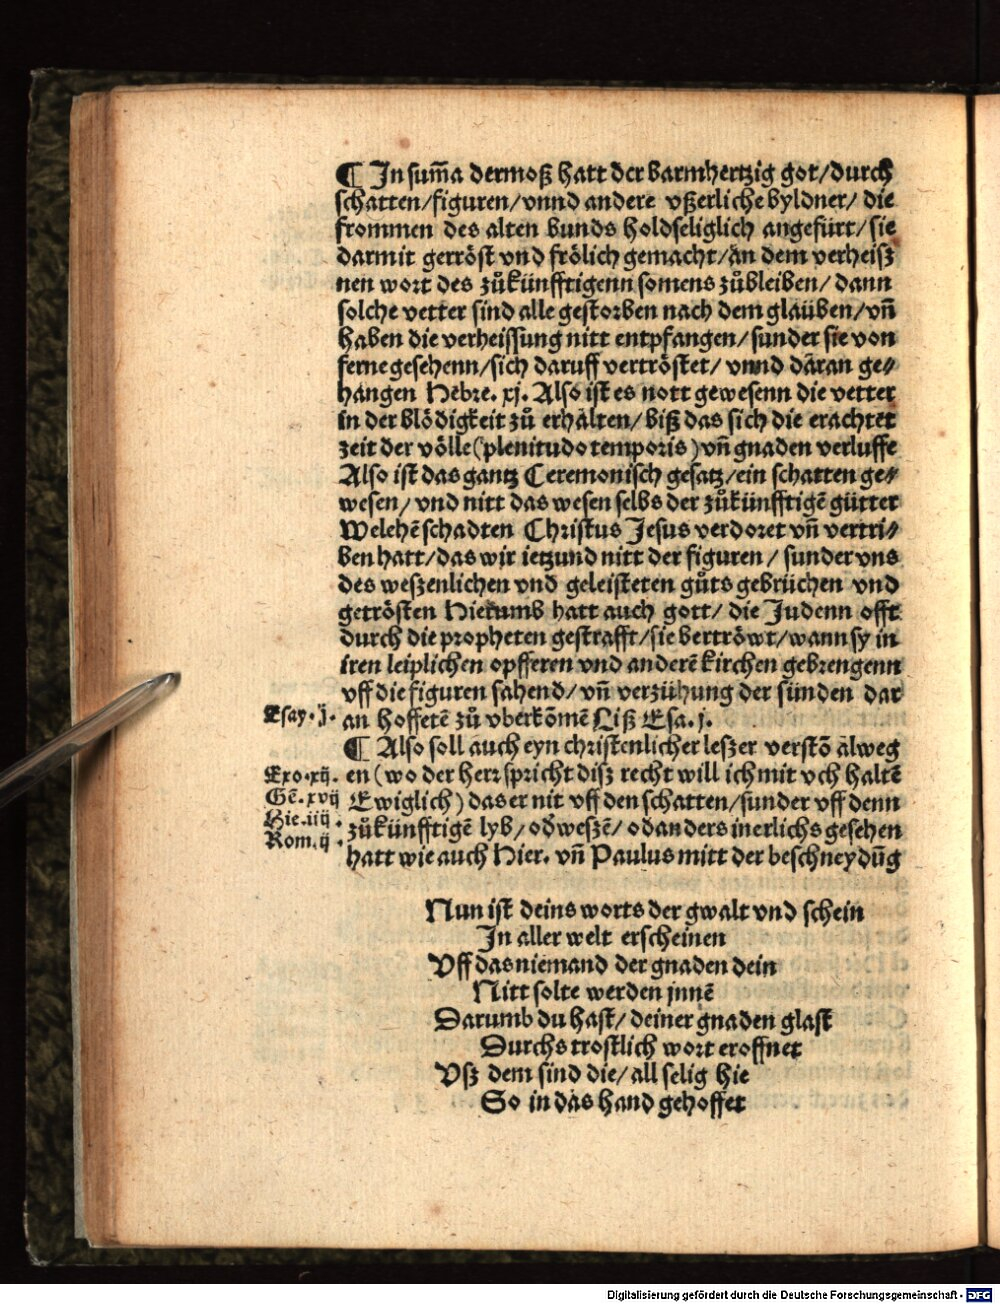 ¶ In sum̃a dermoß hatt der barmhertzig got/durch
schatten/figuren/vnnd andere vßerliche byldner/ die
frommen des alten bunds holdseliglich angefürt/sie
darmit getröst vnd frölich gemacht/an dem verheisz
nen wort des zůkünfftigenn somens zůbleiben/ dann
solche vetter sind alle gestorben nach dem glauben/vñ
haben die verheissung nitt entpfangen/sunder sie von
ferne gesehenn/sich daruff vertröstet/ vnnd daran ge⸗
hangen Hebre. xj. Also ist es nott gewesenn die vetter
in der blödigkeit zů erhalten/biß das sich die erachtet
zeit der völle(plenitudo temporis)vñ gnaden verluffe
Also ist das gantz Ceremonisch gesatz/ein schatten ge⸗
wesen/vnd nitt das wesen selbs der zůkünfftigẽ gütter
Welchẽ schadten Christus Jesus verdoret vñ vertri⸗
ben hatt/das wir ietzund nitt der figuren/ sunder vns
des weszenlichen vnd geleisteten gůts gebruchen vnd
getrösten Hierumb hatt auch gott/ die Judenn offt
durch die propheten gestrafft/sie bertröwt/wann sy in
iren leiplichen opfferen vnd anderẽ kirchen gebrengenn
vff die figuren sahend/vñ verzühung der sünden dar
Esay. j. an hoffetẽ zů vberkõmẽ Liß Esa. j.
¶ Also soll auch eyn christenlicher leszer verstõ alweg
Exo. xij. en(wo der herr spricht disz recht will ich mit vch haltẽ
Gẽ. xvij Ewiglich)das er nit vff den schatten/sunder vff denn
Hie. iiij. zůkünfftigẽ lyb/od̃ weszẽ/od anders inerlichs gesehen
Rom. ij. hatt wie auch Hier. vñ Paulus mitt der beschneydũg
Nun ist deins worts der gwalt vnd schein
In aller welt erscheinen
Vff das niemand der gnaden dein
Nitt solte werden jnnẽ
Darumb du hast/deiner gnaden glast
Durchs trostlich wort eroffnet
Vsz dem sind die/all selig hie
So in das hand gehoffet
Digitalisierung gefördert durch die Deutsche Forschungsgemeinschaft - DFG